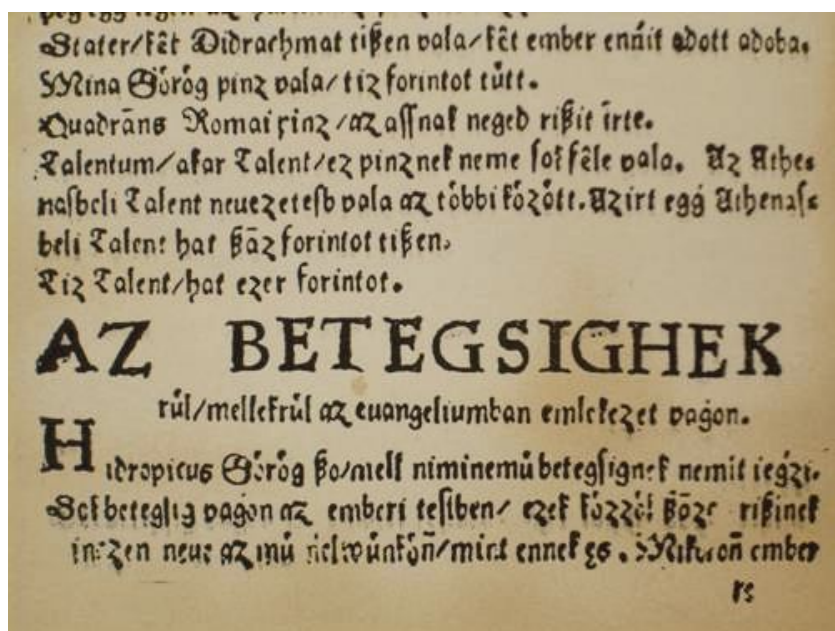 Stater/két Didrachmat tißen vala/két ember enáit adott adoba.
Mina Gőrőg pinz vala/tiz forintot tútt.
Quadrãns Romai pinz/az assnak neged rißit ĩrte.
Talentum/akar Talent/ez pinznek neme sok fêle vala. Az Athe⸗
nasbeli Talent neuezetesb vala az tőbbi kőzőtt. Azirt egǵ Athenas⸗
beli Talent hat ßãz forintot tißen.
Tiz Talent/hat ezer forintot.
AZ BETEGSIGHEK
rúl/mellekrúl az euangeliumban emlekezet vaǵon.
Hidropicus Gőrőg ßo/melľ niminemú betegsignek nemit ieǵzi.
Sok betegsig vaǵon az emberi testben/ ezek kőzzől rißinek
neue az mú mint ennek es. ember
rs